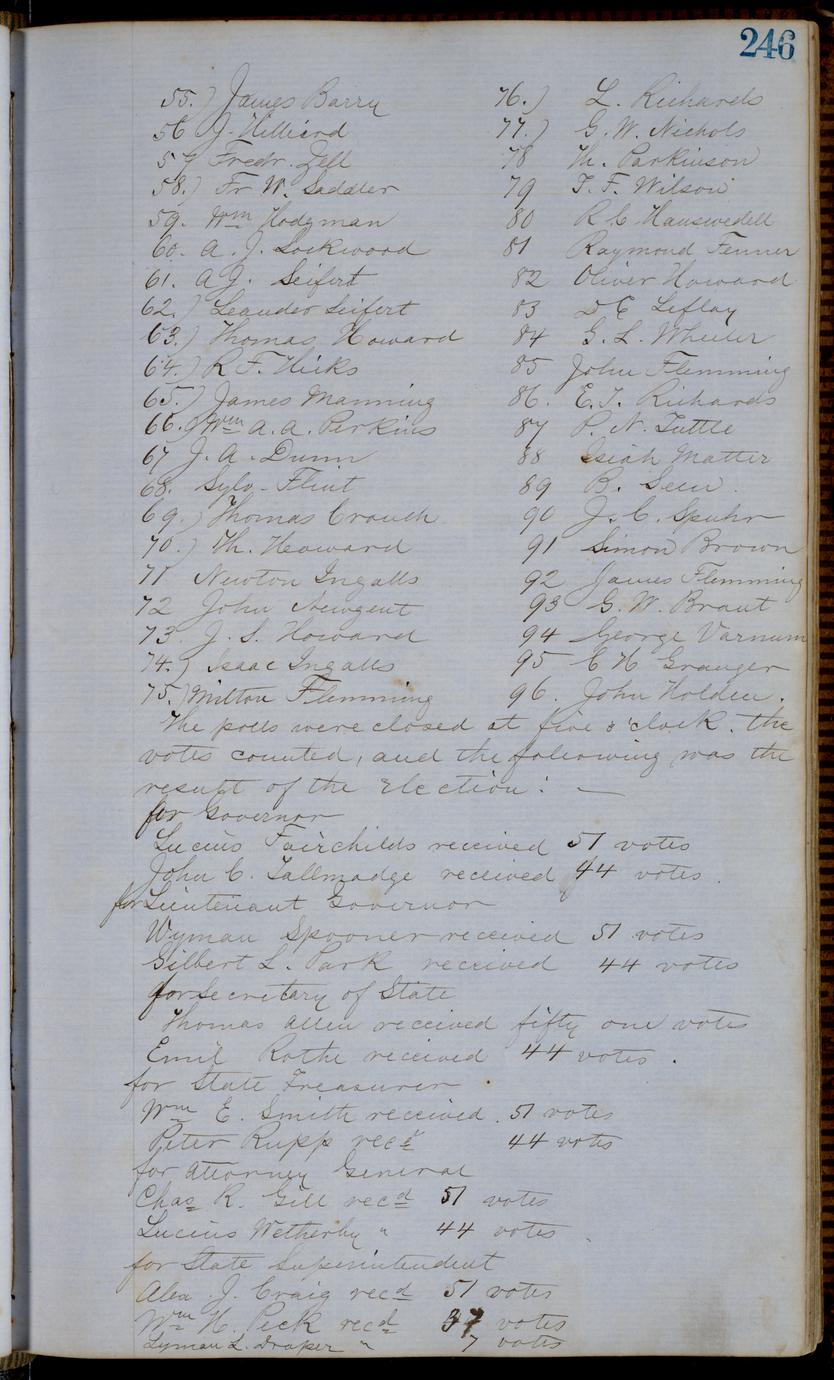 246
55.) James Barry
56 J. Hilliard
57 Fredr. Zell
58.) Fr. W. Saddler
59. Wm Hodgman
60. A. J. Lockwood
61. A J. Seifert
62.) Leander Seifert
63.) Thomas Howard
64.) R F. Hicks
65.) James Manning
66.) Wm A. A. Perkins
67 J. A. Dunn
68. Sylv. Flint
69.) Thomas Crouch
70.) Th. Howard
71 Newton Ingalls
72 John Newgent
73 J. S. Howard
74.) Isaac Ingalls
75.) Milton Flemming
76.) L. Richards
77.) G. W. Nichols
78 Th. Parkinson
79 T. F. Wilson
80 R C Hauswedell
81 Raymond Fenner
82 Oliver Howard
83 D E Leflay
84 G. L. Wheeler
85 John Flemming
86. E. T. Richards
87 P. N. Tuttle
88 Isiah Matter
89 B.
90 J. C. Spuhr
91 Simon Brown
92 James Flemming
93 G. W. Braut
94 George Varnum
95 C H Granger
96. John Holden.
The polls were closed at five o'clock. the
votes counted, and the following was the
result of the Election: —
for Governor
Lucius Fairchilds received 51 votes
John C. Tallmadge received 44 votes.
for Lieutenant Governor
Wyman Spooner received 51 votes
Gilbert L. Park received 44 votes
for Secretary of State
Thomas Allen received fifty one votes
Emil Rothe received 44 votes.
for State Treasurer
Wm E. Smith received 51 votes
Peter Rupp recd 44 votes
for Attorney General
Chas R. Gill recd 51 votes
Lucius Wetherby " 44 votes
for State Superintendent
Alex. J. Craig recd 51 votes
Wm H. Peck recd 37 votes
Lyman L. Draper " 7 votes